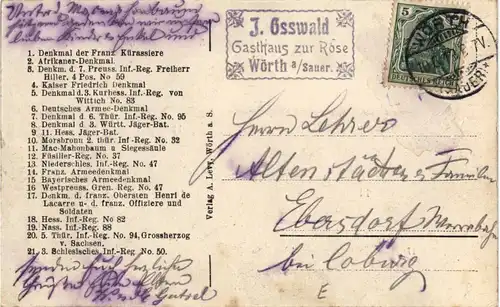 1. Denkmal der Franz Kürassiere
2. Afrikaner-Denkmal
3. Denkm. d. 7. Preuss. Inf.-Reg. Freiherr
Hiller, 4 Pos. No 59
4. Kaiser Friedrich Denkmal
5. Denkmal d. 3. Kurhess. Inf.-Reg. von
Wittich No. 83
6. Deutsches Armee-Denkmal
7. Denkmal d. 6. Thür. Inf.-Reg. No. 95
8. Denkmal d. 3. Württ. Jäger-Bat.
9. 11. Hess. Jäger-Bat.
10. Morsbronn 2. thür. Inf.-Reg No. 32
11. Mac-Mahonbaum u Siegessäule
12. Füsilier-Reg. No. 37
13. Niederschles. Inf.-Reg. No. 47
14. Franz. Armeedenkmal
15. Bayerisches Armeedenkmal
16. Westpreuss. Gren. Reg. No. 47
17. Denkm. d. franz. Obersten Henri de
Lacarre u- d. franz. Offiziere und
Soldaten
18. Hess. Inf.-Reg No 82
19. Nass. Inf.-Reg. No. 88
20. 5. Thür. Inf.-Reg. No. 94, Grossherzog
v. Sachsen.
21. 3. Schlesisches. Inf.-Reg No. 50.
Verlag A. Levy, Wörth a. S.
J. Osswald
Gasthaus zur Rose
Wörth a/Sauer.
5
DEUTSCHES REICH
WÖRTH
(SAUER)
Herrn Lehrer
Ebersdorf Werrabahn
bei Coburg
E